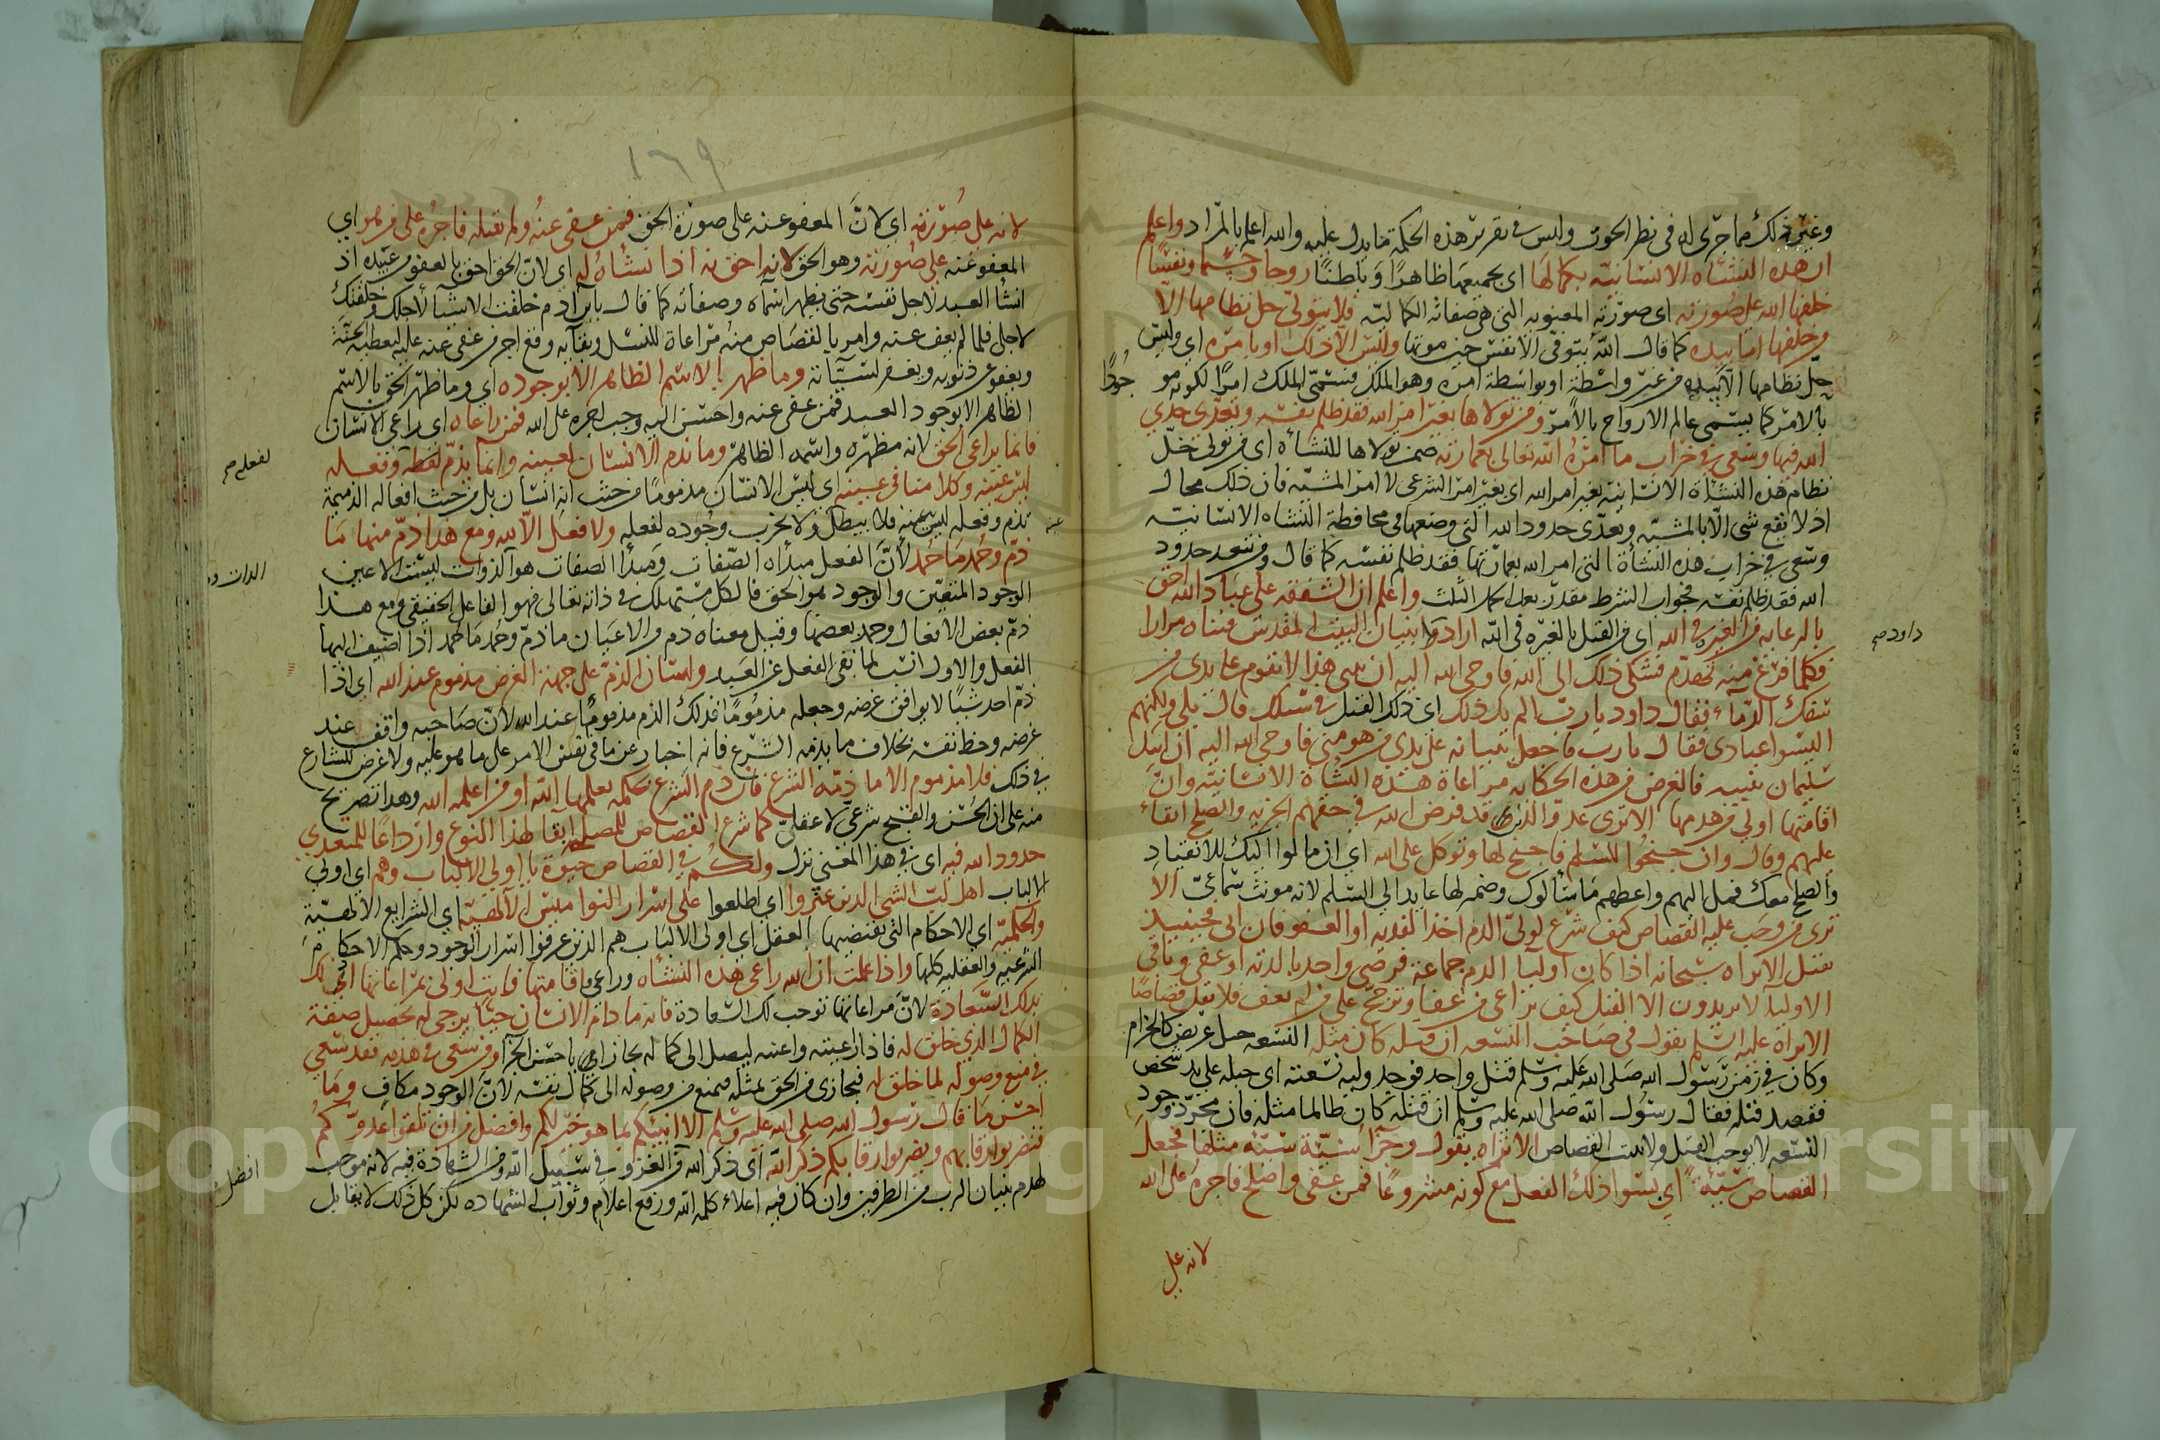 وغير ذلك مما جرى له في نظر الحوت وليس في تقرير هذه الحكمة ما يدل عليه والله اعلم بالمراد واعلم
ان هذه النشأة الانسانية بكمالها اي بجميعها ظاهرا وباطنا روحا وجسما ونفسا
خلقها الله على صورته اي صورته المعنوية التي هي صفاته الكمالية فلا يتولى حل نظامها الا
من خلقها اما بيده كما قال الله يتوفى الانفس حين موتها وليس الا ذلك او بامره اي وليس
حل نظامها الا بيده من غير واسطة او بواسطة امره وهو الملك فسمى الملك امرا لكونه مو
جودا
بالامر كما يسمى عالم الارواح بالامر ومن تولاها بغير امر الله فقد ظلم نفسه وتعدى حدي
الله فيها وسعى في خراب ما امره الله تعالى بعمارته ضمير تولاها للنشأة اي من تولى حل
نظام هذه النشأة الانسانية بغير امر الله اي بغير امر الشرعي لا امر المشية فان ذلك محال
اذ لا يقع شى الا بالمشية وتعدى حدود الله التي وضعها في محافظة النشاه الانسانية
وسعى في خراب هذه النشأة التي امر الله بعمارتها فقد ظلم نفسه كما قال ومن يتعد حدود
الله فقد ظلم نفسه فجواب الشرط مقدر واعلم ان الشفقة على عباد الله احق
بالرعاية من الغيرة في الله اي من القتل بالغيرة في الله اراد داود بنيان البيت المقدس فبناه مرارا
داود صح
فكلما فرغ منه تهدم فشكى ذلك الى الله فاوحى الله اليه ان بيتي هذا لا يقوم على يدي من
سفك الدماء فقال داود يا رب الم يك ذلك اي ذلك القتل في سبيلك قال بلى ولكنهم
اليسوا عبادى فقال يا رب فاجعل بنيانه على يدي من هو مني فاوحى الله اليه ان ابنك
سليمان يبنيه فالغرض من هذه الحكاية مراعاة هذه النشأة الانسانية وان
اقامتها اولى من هدمها الا ترى عدو الدين قد فرض الله في حقهم الجزية والصلح ابقاء
عليهم وقال وان جنحوا للسلم فاجنح لها وتوكل على الله اي ان مالوا اليك للانقياد
والصلح معك فمل اليهم واعطهم ما سألوك وضمير لها عايد الى السلم لانه مونث سماعي الا
ترى من وجب عليه القصاص كيف شرع لولي الدم اخذ الفدية او العفو فان ابى فحينيذ
يقتل الا تراه سبحانه اذا كان اوليا الدم جماعة فرضى واحد بالدية او عفى وباقي
الاوليا لا يريدون الا القتل كيف يراعى من عفا ويرجح على من لم يعف فلا يقتل قصاصا
الا تراه عليه السلم يقول في صاحب النسعة ان قتله كان مثله النسعة حبل عريض كالحزام
وكان في زمن رسول الله صلى الله عليه وسلم قتل واحد فوجد وليه نسعته اي حبله على يد شخص
فقصد قتله فقال رسول الله صلى الله عليه وسلم ان قتله كان ظالما مثله فان مجرد وجود
النسعة لا يوجب القتل ولا يثبت القصاص الا تراه يقول وجزاء سيئة سيئة مثلها فجعل
القصاص سيئة اي يسوا ذلك الفعل مع كونه مشروعا فمن عفى واصلح فاجره على الله
لانه على
١٦٩
لانه على صورته اي لان المعفو عنه على صورة الحق فمن عفى عنه ولم يقتله فاجره على من هو اي
المعفو عنه على صورته وهو الحق لانه احق به اذ انشأه له اي لان الحق احق بالعفو من عبيده اذ
انشأ العبد لاجل نفسه حتى يظهر اسماه وصفاته كما قال يا بن ادم خلقت الاشيا لاجلك وخلقتك
لاجلي فلما لم يعف عنه وامر بالقصاص منه مراعاة للنسل وبقائه وقع اجر من عفى عنه عليه ليعطيه الجنة
ويعفو عن ذنوبه ويغفر سيئاته وما ظهر بالاسم الظاهر الا بوجوده اي وما ظهر الحق بالاسم
الظاهر الا بوجود العبد فمن عفى عنه واحسن اليه وجب اجره على الله فمن راعاه اي راعى الانسان
فانما يراعى الحق لانه مظهره واسمه الظاهر وما يذم الانسان لعينه وانما يذم لفعله وفعله
لفعله صح
ليس عينه وكلامنا في عينه اي ليس الانسان مذموما من حيث انه انسان بل من حيث افعاله الذميمة
يذم وفعله ليس عينه فلا يبطل ولا يخرب وجوده لفعله ولا فعل الا لله ومع هذا ذم منها ما
ذم وحمد ما حمد لان الفعل مبدأه الصفات ومبدأ الصفات هو الذوات ليست الا عين
الوجود المتعين والوجود هو الحق فالكل مستهلك في ذاته تعالى فهو الفاعل الحقيقي ومع هذا
ذم بعض الافعال وحمد بعضها وقيل معناه ذم من الاعيان ما ذم وحمد ما حمد اذا اضيف اليها
الفعل والاول انسب لما نفى الفعل عن العبد ولسان الذم على جهة الغرض مذموم عند الله اي اذا
ذم احد شيئا لا يوافق غرضه وجعله مذموما فذلك الذم مذموم عند الله لان صاحبه واقف عند
غرضه وحظ نفسه بخلاف ما يذمه الشرع فانه اخبار عن ما في نفس الامر على ما هو عليه ولا غرض للشارع
في ذلك فلا مذموم الا ما ذمه الشرع فان ذم الشرع لحكمة يعلمها الله او من اعلمه الله وهذا تصريح
منه على ان الحسن والقبح شرعي لا عقلي كما شرع القصاص للمصلحة ابقا لهذا النوع وارداعا للمتعدي
حدود الله فيه اي في هذا المعنى نزل ولكم في القصاص حيوة يا اولي الالباب وهم اي اولي
الالباب اهل لب الشي الذين عثروا اي اطلعوا على اسرار النواميس الالهية اي الشرايع الالهية
والحكمية اي الاحكام التي يقتضيها العقل اي اولى الالباب هم الذين عرفوا اسرار الوجود وحكم الاحكام
الشرعية والعقلية كلها واذا علمت ان الله راعى هذه النشأه وراعى اقامتها فانت اولى بمراعاتها اذ لك
بذلك السعادة لان مراعاتها توجب لك السعادة فانه ما دام الانسان حيا يرجى له تحصيل صفة
الكمال الذي خلق له فاذا راعيته واعنته ليصل الى كماله تجازى باحسن الجزا ومن سعى في هدمه فقد سعى
في منع وصوله لما خلق له فيجازى من الحق بمثله فيمنع من وصوله الى كمال نفسه لان الوجود مكاف وما
احسن ما قال رسول الله صلى الله عليه وسلم الا انبئكم بما هو خير لكم وافضل من ان تلقوا عدوكم
فتضربوا رقابهم ويضربوا رقابكم ذكر الله اي ذكر الله من الغزو في سبيل الله ومن الشهادة فيه لانه موجب
افضل
لهدم بنيان الرب من الطرفين وان كان فيه اعلاء كلمة الله ورفع اعلام وثواب الشهادة لكن كل ذلك لا يقابل
Copyright © King Saud University